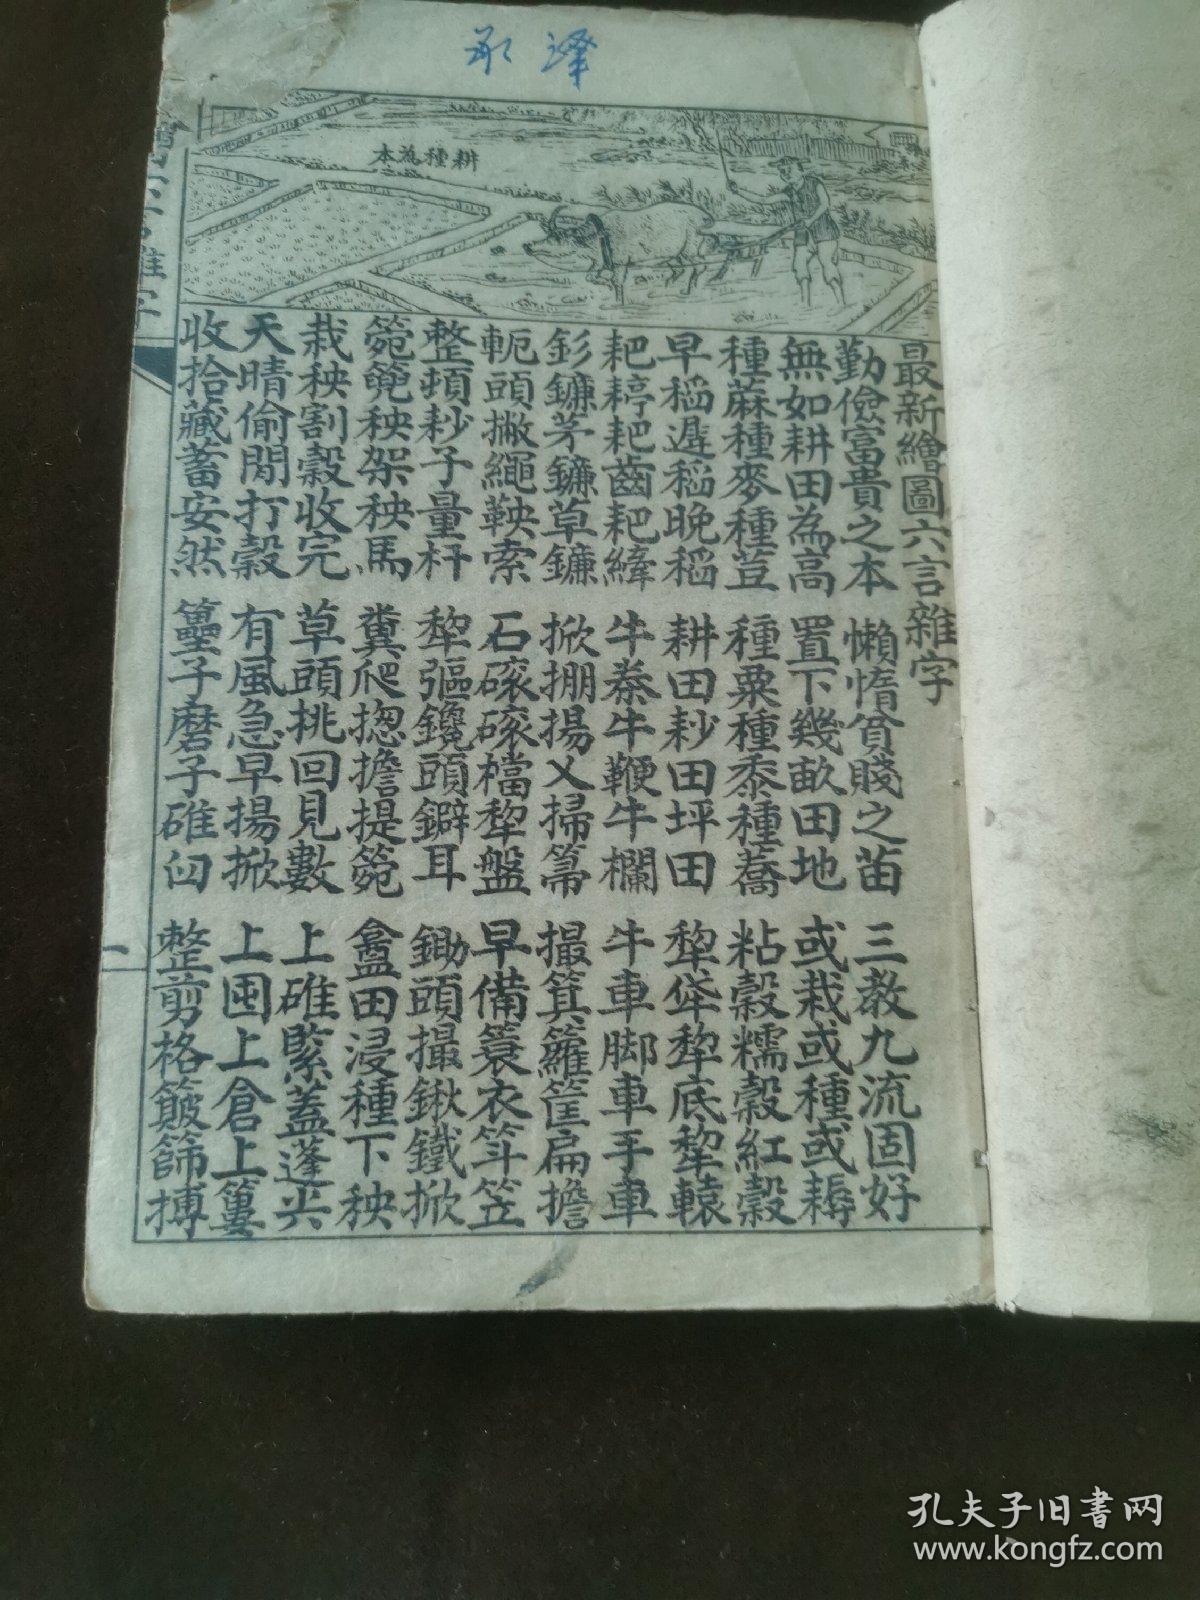 耕種為本
最新繪圖六言雜字
勤儉富貴之本 懶惰貧賤之苗 三教九流固好
無如耕田為高 置下幾畝田地 或栽或種或耨
種蔴種麥種荳 種粟種黍種蕎 粘穀糯穀紅穀
早稻遲稻晚稻 耕田耖田坪田 犂底犂轅
耙齒耙 牛鞭牛欄 牛車脚車手車
鐮茅鐮草鐮 掀掤揚乂掃箒 撮箕籮筐扁擔
軛頭撇繩鞅索 石磙磙檔犂盤 早備簑衣笠
整頓耖子量杆 犂彄鑱頭鐴耳 鋤頭撮鍬鐵掀
秧架秧馬 糞爬擔提 田浸種下秧
栽秧割穀收完 草頭挑回見數 上碓緊蓋蓬
天晴偷閒打穀 有風急早揚掀 上囤上倉上簍
收拾藏蓄安然 子磨子碓臼 整剪格簸篩搏
一
孔夫子旧书网
www.kongfz.com